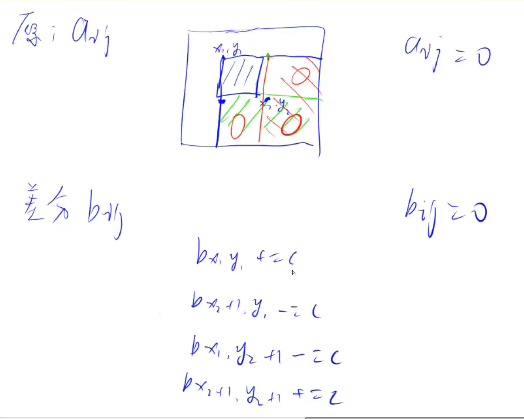 原: aij
x₁,y₁
aij = 0
0
x₂ y₂
0
0
差分 bij
bij = 0
bx₁y₁ += c
bx₂+1,y₁ -= c
bx₁,y₂+1 -= c
bx₂+1,y₂+1 += c